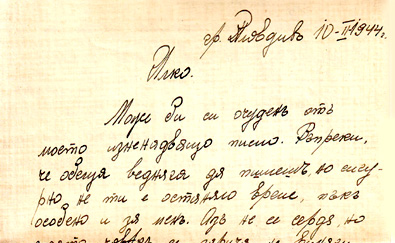 гр. Пловдивъ 10-II 1944г.
Илко.
Може би си очуденъ отъ
моето изненадващо писмо. Въпреки,
че обеща веднага да пишешъ, но сигу-
рно не ти е останало време, пъкъ
особено и за менъ. Азъ не се сърдя, но